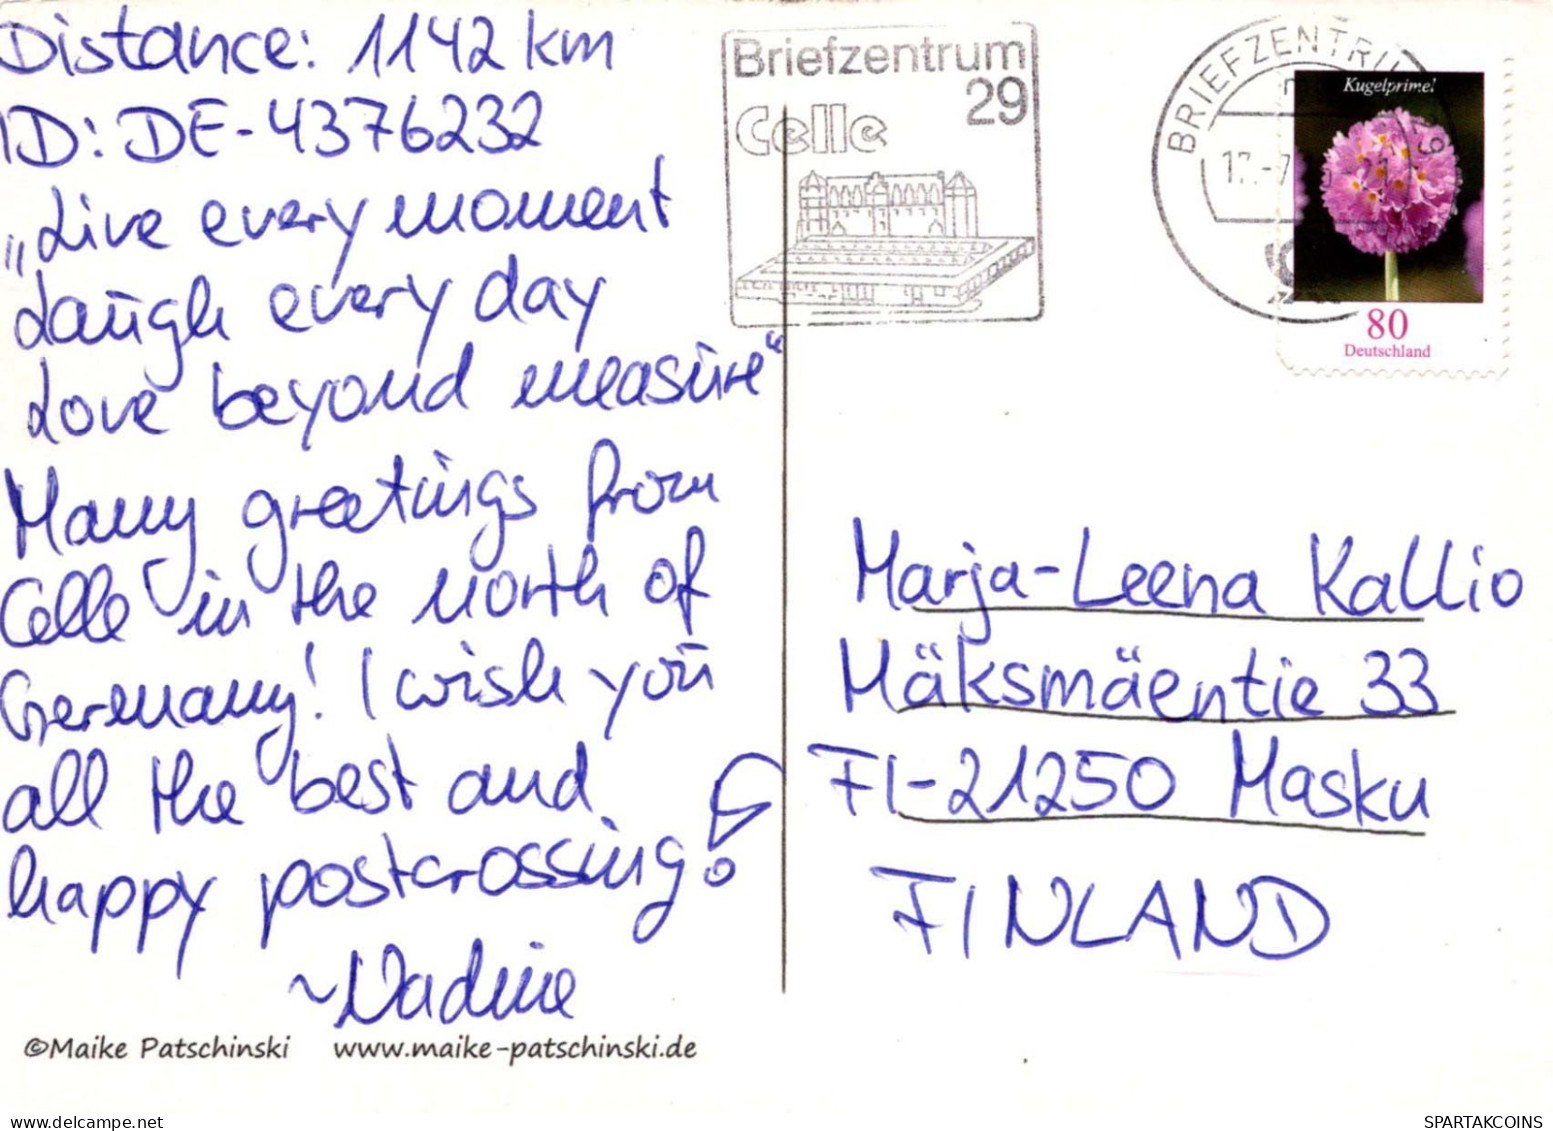 Distance: 1142 km
ID: DE-4376232
„Live every moment
Laugh every day
Love beyond measure“
Many greetings from
Celle in the north of
Germany! I wish you
all the best and
happy postcrossing!
~Nadine
©Maike Patschinski www.maike-patschinski.de
Briefzentrum
29
Celle
BRIEFZENTRUM
Kugelprimel
80
Deutschland
Marja-Leena Kallio
Mäksmäentie 33
FI-21250 Masku
FINLAND
delcampe.net
SPARTAKCOINS